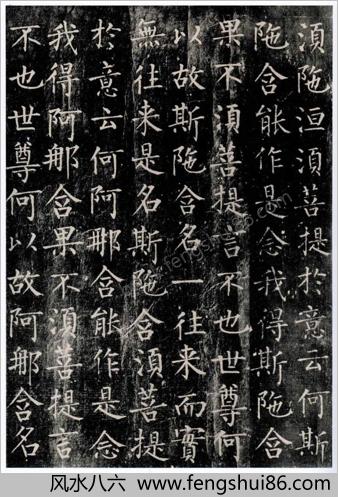 須陁洹須菩提於意云何斯
陁含能作是念我得斯陁含
果不須菩提言不也世尊何
以故斯陁含名一往来而實
無往来是名斯陁含須菩提
於意云何阿那含能作是念
我得阿那含果不須菩提言
不也世尊何以故阿那含名
www.fengshui86.com
风水八六 www.fengshui86.com